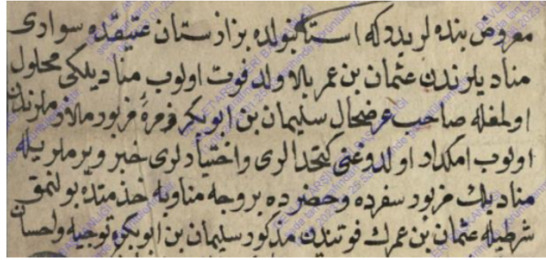 معروض بنده لريدر كه استانبولده بزازستان عتيقده سوارى
مناديلرندن عثمان بن عمر بلا ولد فوت اولوب مناديلكى محلول
اولمغله صاحب عرضحال سليمان بن ابوبكر زمرۀ مزبور ملازملرندن
اولوب امكدار اولدوغنى كتخدالرى واختيارلرى خبر ويرملريله
مناديلك مزبور سفرده وحضرده بروجه مناوبه خدمتده بولنمق
شرطيله عثمان بن عمرك فوتندن مذكور سليمان بن ابوبكره توجيه واحسان